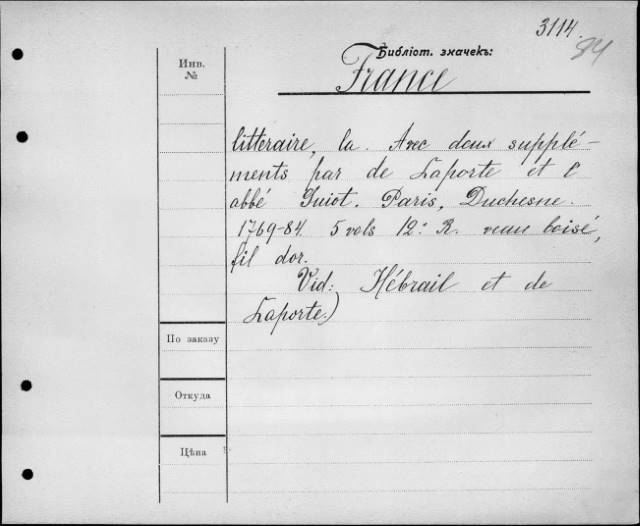 3114.
84
Библіот. значекъ:
Инв.
№
France
litteraire, la. Avec deux supplé-
ments par de Laporte et l'
abbé Guiot. Paris, Duchesne.
1769-84. 5 vols 12º R. veau boisé,
fil d'or.
Vid: Hébrail et de
Laporte.)
По заказу
Откуда
Цѣна